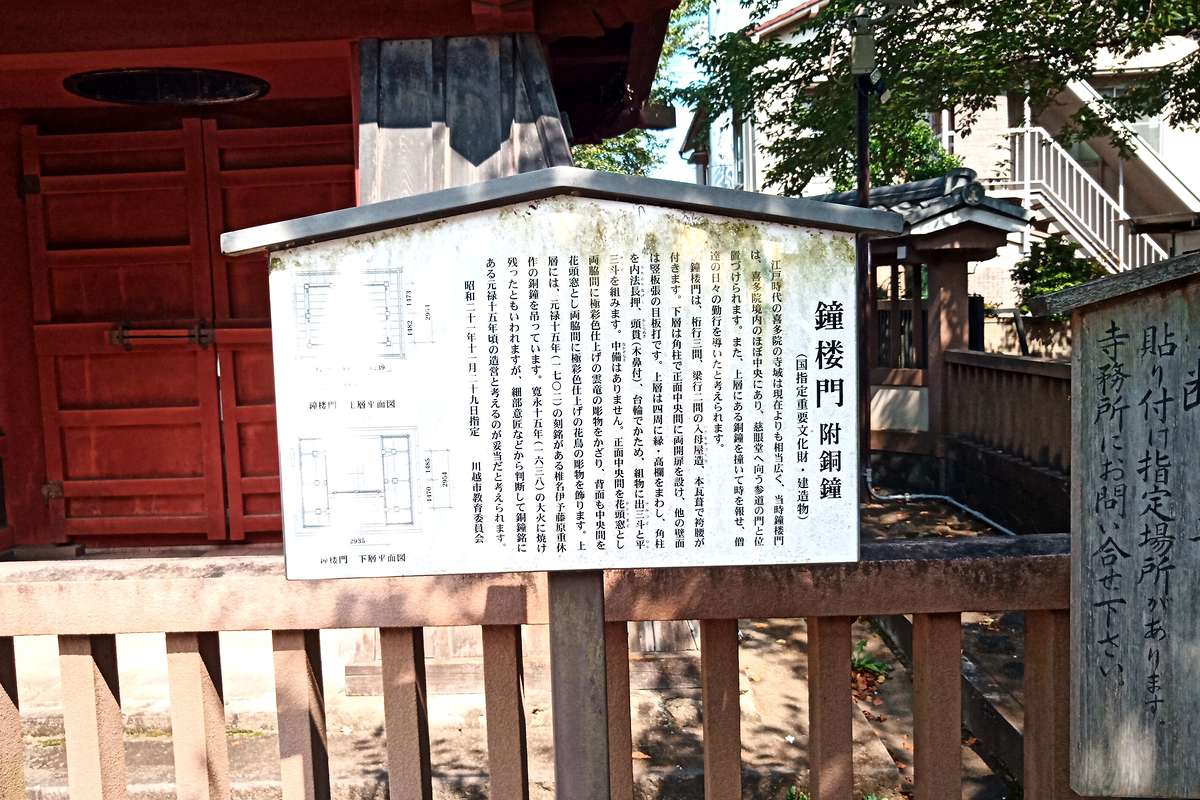 鐘楼門 附銅鐘
(国指定重要文化財・建造物)
江戸時代の喜多院の寺域は現在よりも相当広く、当時鐘楼門
は、喜多院境内のほぼ中央にあり、慈眼堂へ向う参道の門と位
置づけられます。また、上層にある銅鐘を撞いて時を報せ、僧
達の日々の勤行を導いたと考えられます。
鐘楼門は、桁行三間、梁行二間の入母屋造、本瓦葺で袴腰が
付きます。下層は角柱で正面中央間に両開扉を設け、他の壁面
は竪板張の目板打です。上層は四周に縁・高欄をまわし、角柱
を内法長押、頭貫(木鼻付)、台輪でかため、組物に出三斗と平
三斗を組みます。中備はありません。正面中央間を花頭窓とし
両脇間に極彩色仕上げの雲竜の彫物をかざり、背面も中央間を
花頭窓とし両脇間に極彩色仕上げの花鳥の彫物を飾ります。上
層には、元禄十五年(一七〇二)の刻銘がある椎名伊予藤原重休
作の銅鐘を吊っています。寛永十五年(一六三八)の大火に焼け
残ったともいわれますが、細部意匠などから判断して銅鐘銘に
ある元禄十五年頃の造営と考えるのが妥当だと考えられます。
昭和二十一年十一月二十九日指定 川越市教育委員会
鐘楼門 上層平面図
2935
鐘楼門 下層平面図
貼り付け指定場所があります。
寺務所にお問い合せ下さい。